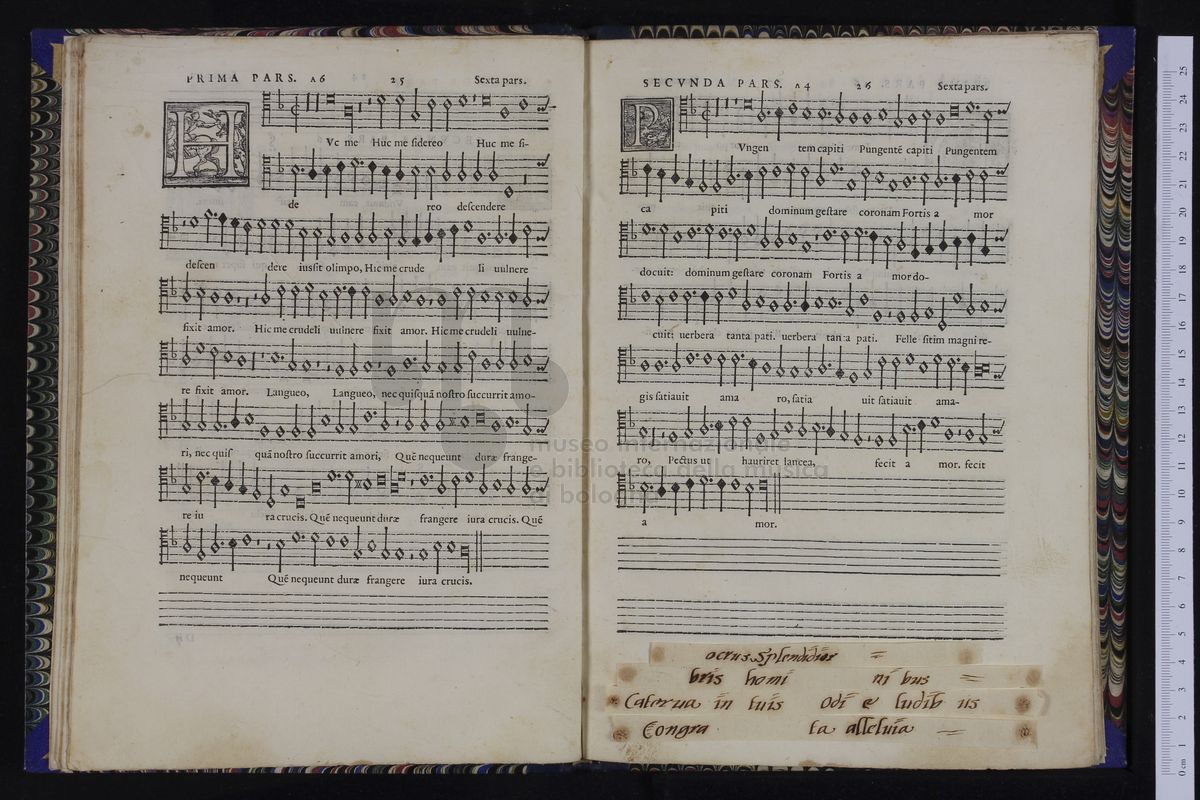 PRIMA PARS. A6 25 Sexta pars.
H Vc me Huc me sidereo Huc me si-
de reo descendere
descen dere iussit olimpo, Hic me crude li uulnere
fixit amor. Hic me crudeli uulnere fixit amor. Hic me crudeli uulne-
re fixit amor. Langueo, Langueo, nec quisquã nostro succurrit amo-
ri, nec quis quã nostro succurrit amori, Quẽ nequeunt duræ frange-
re iu ra crucis. Quẽ nequeunt duræ frangere iura crucis. Quẽ
nequeunt Quẽ nequeunt duræ frangere iura crucis.
SECVNDA PARS. A4 26 Sexta pars.
P Vngen tem capiti Pungentẽ capiti Pungentem
ca piti dominum gestare coronam Fortis a mor
docuit: dominum gestare coronam Fortis a mor do-
cuit: uerbera tanta pati. uerbera tanta pati. Felle sitim magni re-
gis satiauit ama ro, satia uit satiauit ama-
ro, Pectus ut hauriret lancea, fecit a mor. fecit
a mor.
bris homi ni bus
Caterua in tuis odi e ludib iis
Congra ta alleluia
museo internazionale
e biblioteca della musica
di bologna
0 cm 1 2 3 4 5 6 7 8 9 10 11 12 13 14 15 16 17 18 19 20 21 22 23 24 25